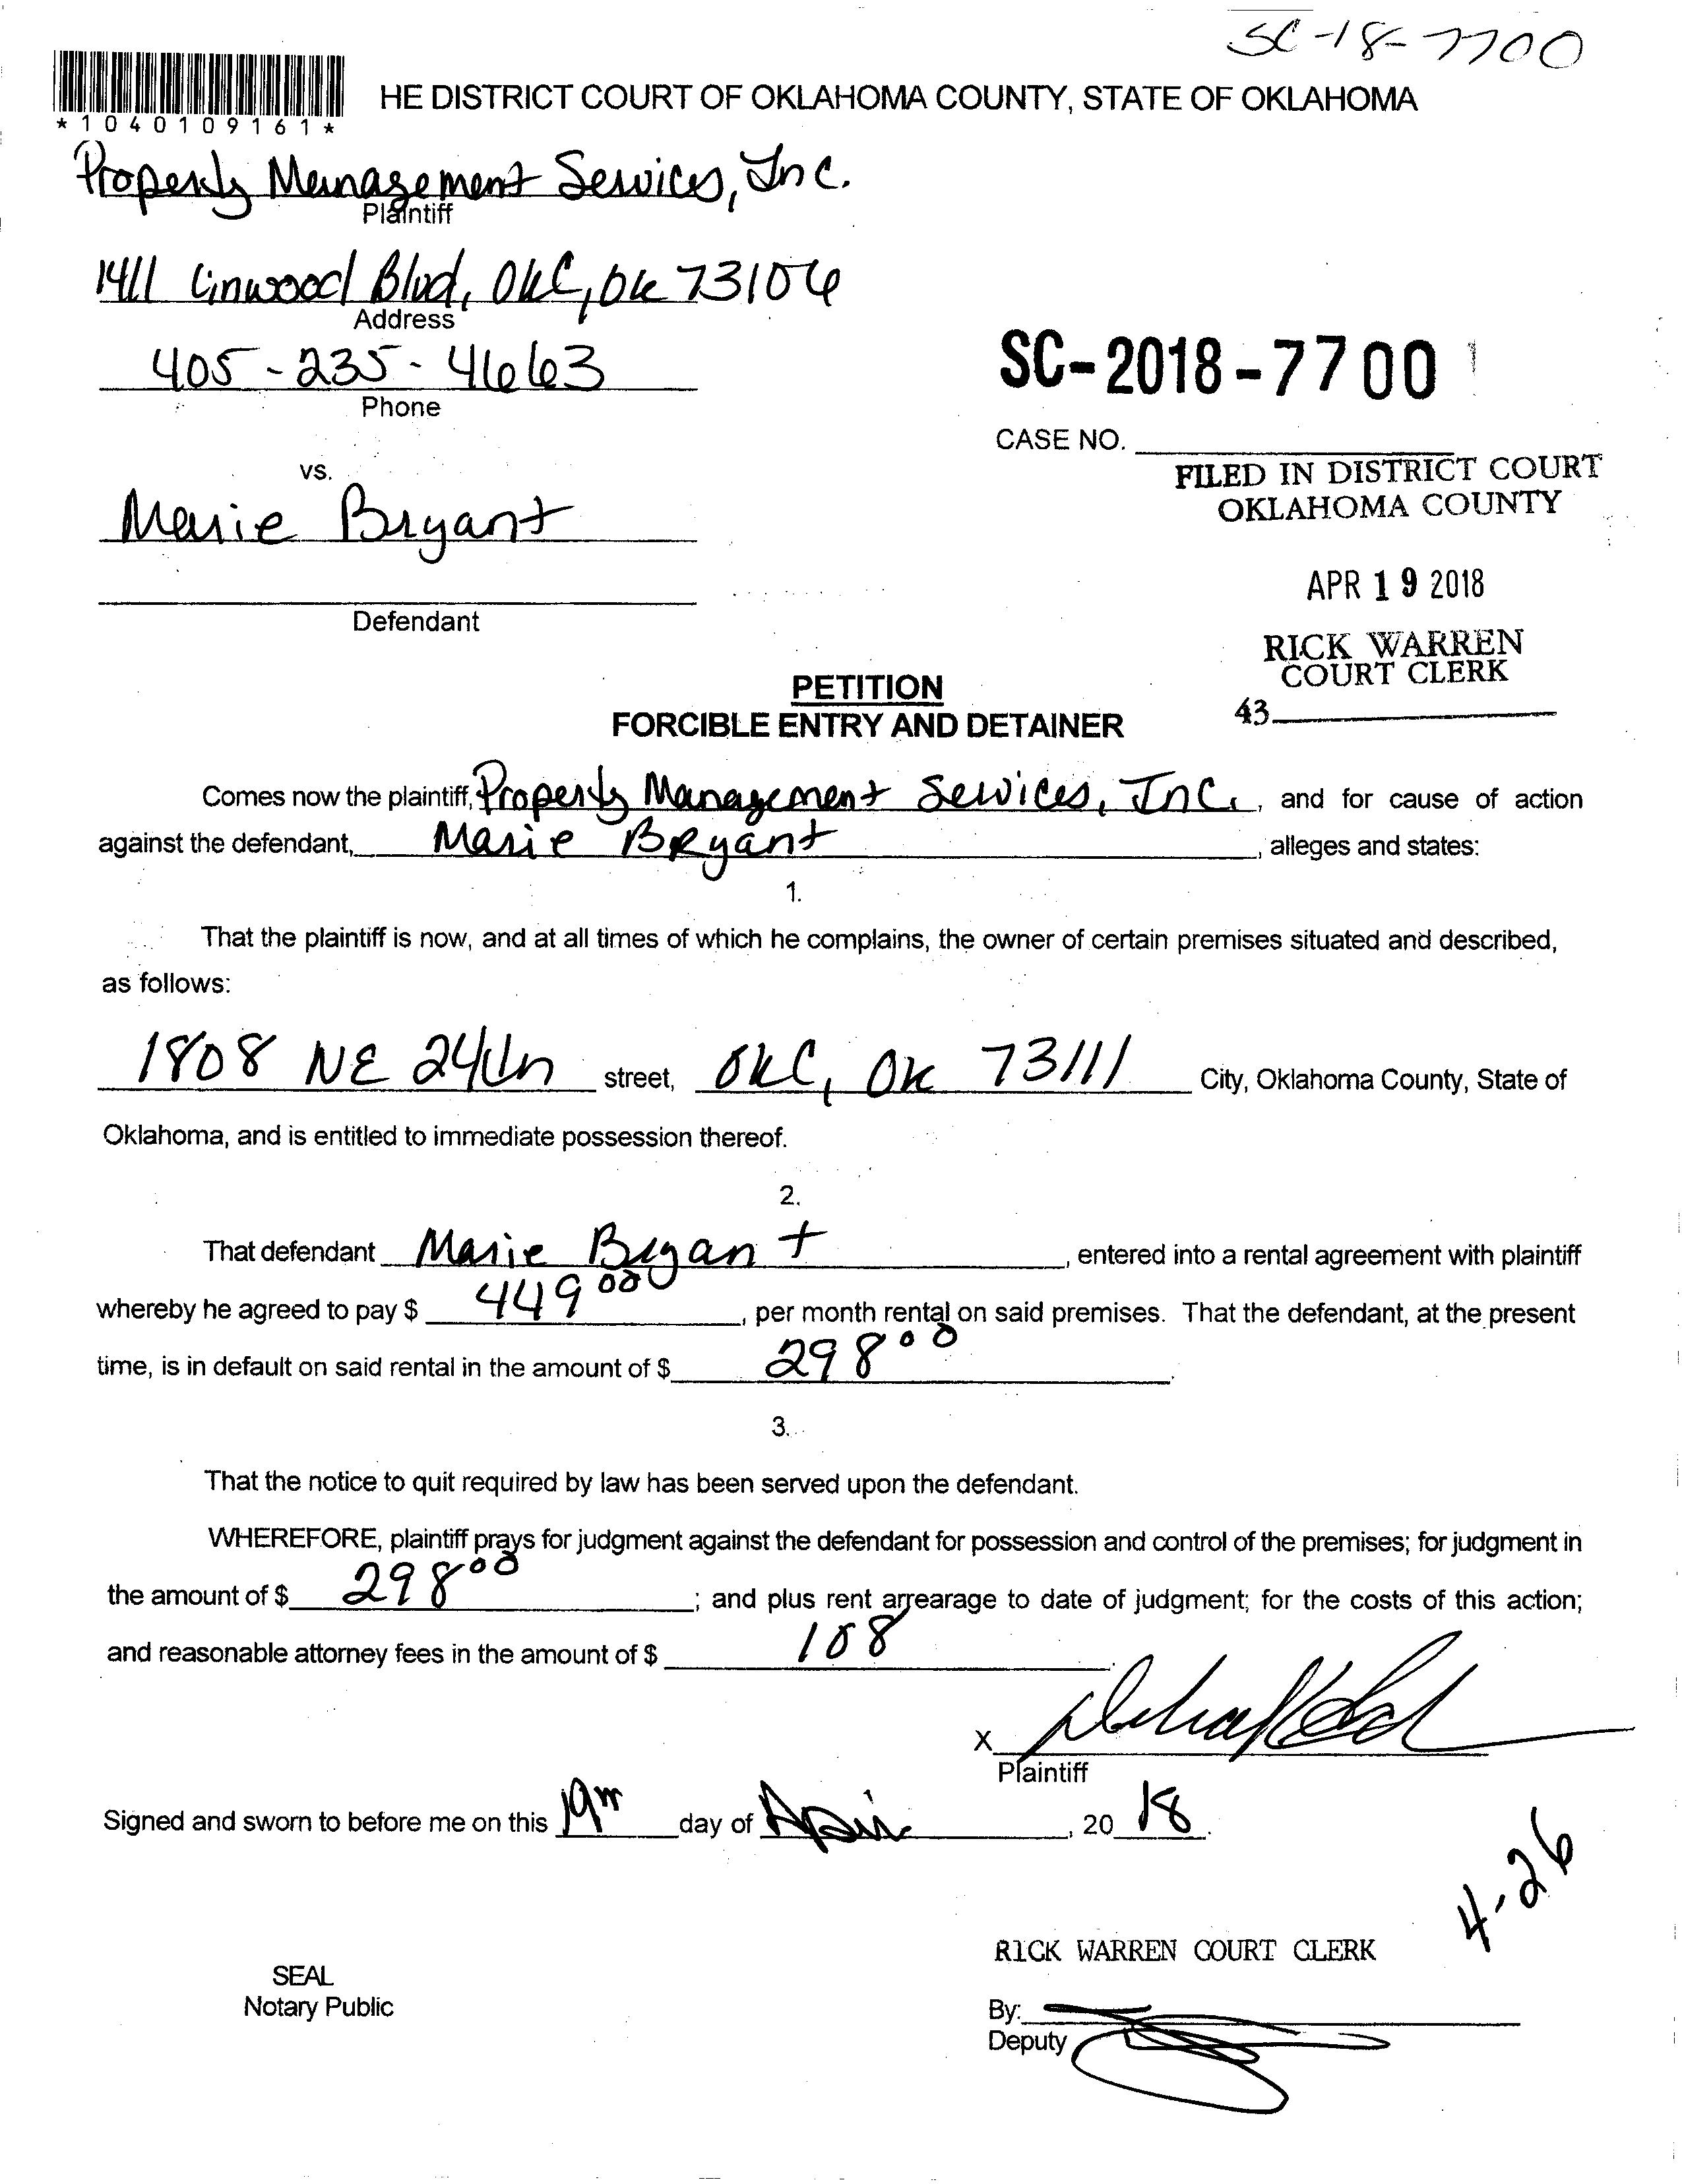 SC-18-7700
HE DISTRICT COURT OF OKLAHOMA COUNTY, STATE OF OKLAHOMA
*1040109161*
Property Management Services, Inc.
Plaintiff
1411 Linwood Blvd, OKC, OK 73106
Address
405-235-4663
Phone
SC-2018-7700
CASE NO.
vs.
FILED IN DISTRICT COURT
OKLAHOMA COUNTY
Marie Bryant
APR 19 2018
Defendant
RICK WARREN
COURT CLERK
43
PETITION
FORCIBLE ENTRY AND DETAINER
Comes now the plaintiff, Property Management Services, Inc., and for cause of action
against the defendant, Marie Bryant, alleges and states:
1.
That the plaintiff is now, and at all times of which he complains, the owner of certain premises situated and described,
as follows:
1808 NE 24th street, OKC, OK 73111 City, Oklahoma County, State of
Oklahoma, and is entitled to immediate possession thereof.
2.
That defendant Marie Bryant, entered into a rental agreement with plaintiff
whereby he agreed to pay $ 449 00, per month rental on said premises. That the defendant, at the present
time, is in default on said rental in the amount of $ 298 00.
3.
That the notice to quit required by law has been served upon the defendant.
WHEREFORE, plaintiff prays for judgment against the defendant for possession and control of the premises; for judgment in
the amount of $ 298 00; and plus rent arrearage to date of judgment; for the costs of this action;
and reasonable attorney fees in the amount of $ 108.
X
Plaintiff
Signed and sworn to before me on this 19th day of April, 20 18.
4-26
RICK WARREN COURT CLERK
SEAL
Notary Public
By:
Deputy